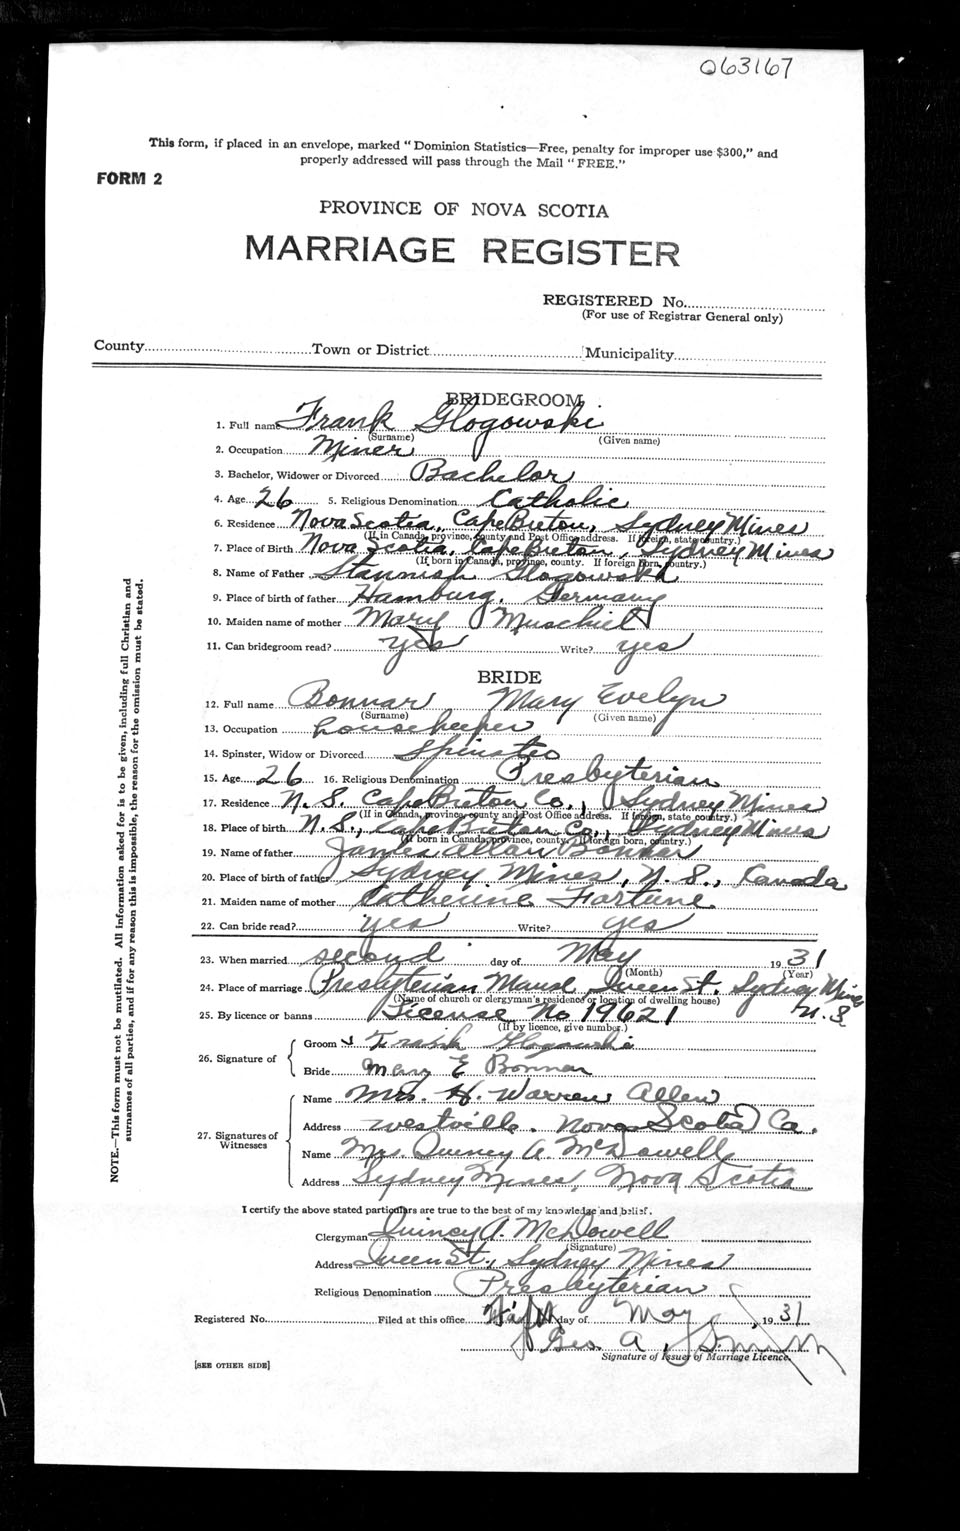 063167
This form, if placed in an envelope, marked "Dominion Statistics—Free, penalty for improper use $300," and
properly addressed will pass through the Mail "FREE."
FORM 2
PROVINCE OF NOVA SCOTIA
MARRIAGE REGISTER
REGISTERED No.
(For use of Registrar General only)
County Town or District Municipality
BRIDEGROOM
1. Full name Frank Glogowski
(Surname) (Given name)
2. Occupation Miner
3. Bachelor, Widower or Divorced Bachelor
4. Age 26 5. Religious Denomination Catholic
6. Residence Nova Scotia, Cape Breton, Sydney Mines
(If in Canada, province, county and Post Office address. If foreign, state country.)
7. Place of Birth Nova Scotia, Cape Breton, Sydney Mines
(If born in Canada, province, county. If foreign born, country.)
8. Name of Father Glogowski
9. Place of birth of father Hamburg, Germany
10. Maiden name of mother Mary
11. Can bridegroom read? yes Write? yes
BRIDE
12. Full name Bonnar Mary Evelyn
(Surname) (Given name)
13. Occupation housekeeper
14. Spinster, Widow or Divorced
15. Age 26 16. Religious Denomination Presbyterian
17. Residence N.S. Cape Breton Co., Sydney Mines
(If in Canada, province, county and Post Office address. If foreign, state country.)
18. Place of birth N.S., Cape Breton Co., Sydney Mines
(If born in Canada, province, county. If foreign born, country.)
19. Name of father James Allan Bonnar
20. Place of birth of father Sydney Mines, N.S., Canada
21. Maiden name of mother Catherine Fortune
22. Can bride read? yes Write? yes
23. When married second day of May 1931
(Month) (Year)
24. Place of marriage Presbyterian Manse Queen St. Sydney Mines
N.S
(Name of church or clergyman's residence or location of dwelling house)
25. By licence or banns License No 19621
(If by licence, give number.)
26. Signature of
Groom Frank Glogowski
Bride Mary E Bonnar
27. Signatures of Witnesses
Name Mrs. H. Warren Allen
Address Westville. Nova Scotia Ca.
Name Mrs. Quincy A. McDowell
Address Sydney Mines, Nova Scotia
I certify the above stated particulars are true to the best of my knowledge and belief.
Clergyman Quincy A. McDowell
(Signature)
Address Queen St., Sydney Mines
Religious Denomination Presbyterian
Registered No. Filed at this office day of May, 1931
Geo. A. Smith
Signature of Issuer of Marriage Licence.
[SEE OTHER SIDE]
NOTE.—This form must not be mutilated. All information asked for is to be given, including full Christian and
surnames of all parties, and if for any reason this is impossible, the reason for the omission must be stated.